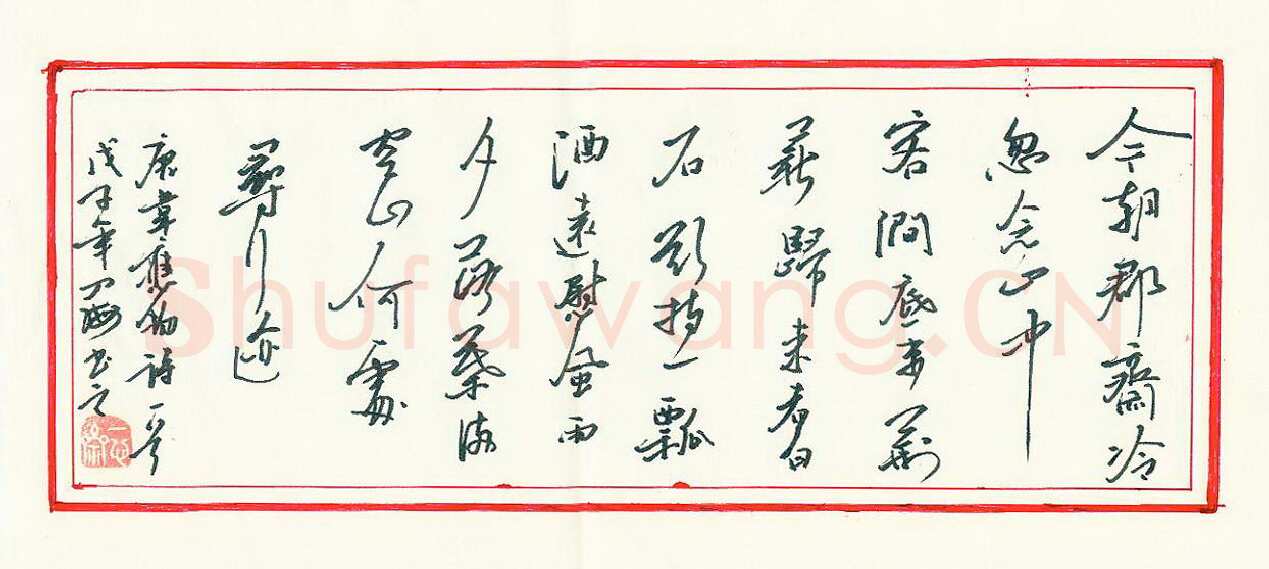 今朝郡齋冷
忽念山中
客澗底束荊
薪歸來煮白
石欲持一瓢
酒遠慰風雨
夕落葉滿
空山何處
尋行迹
唐韋應物詩一首
戊子年海书之
Shufawang.CN